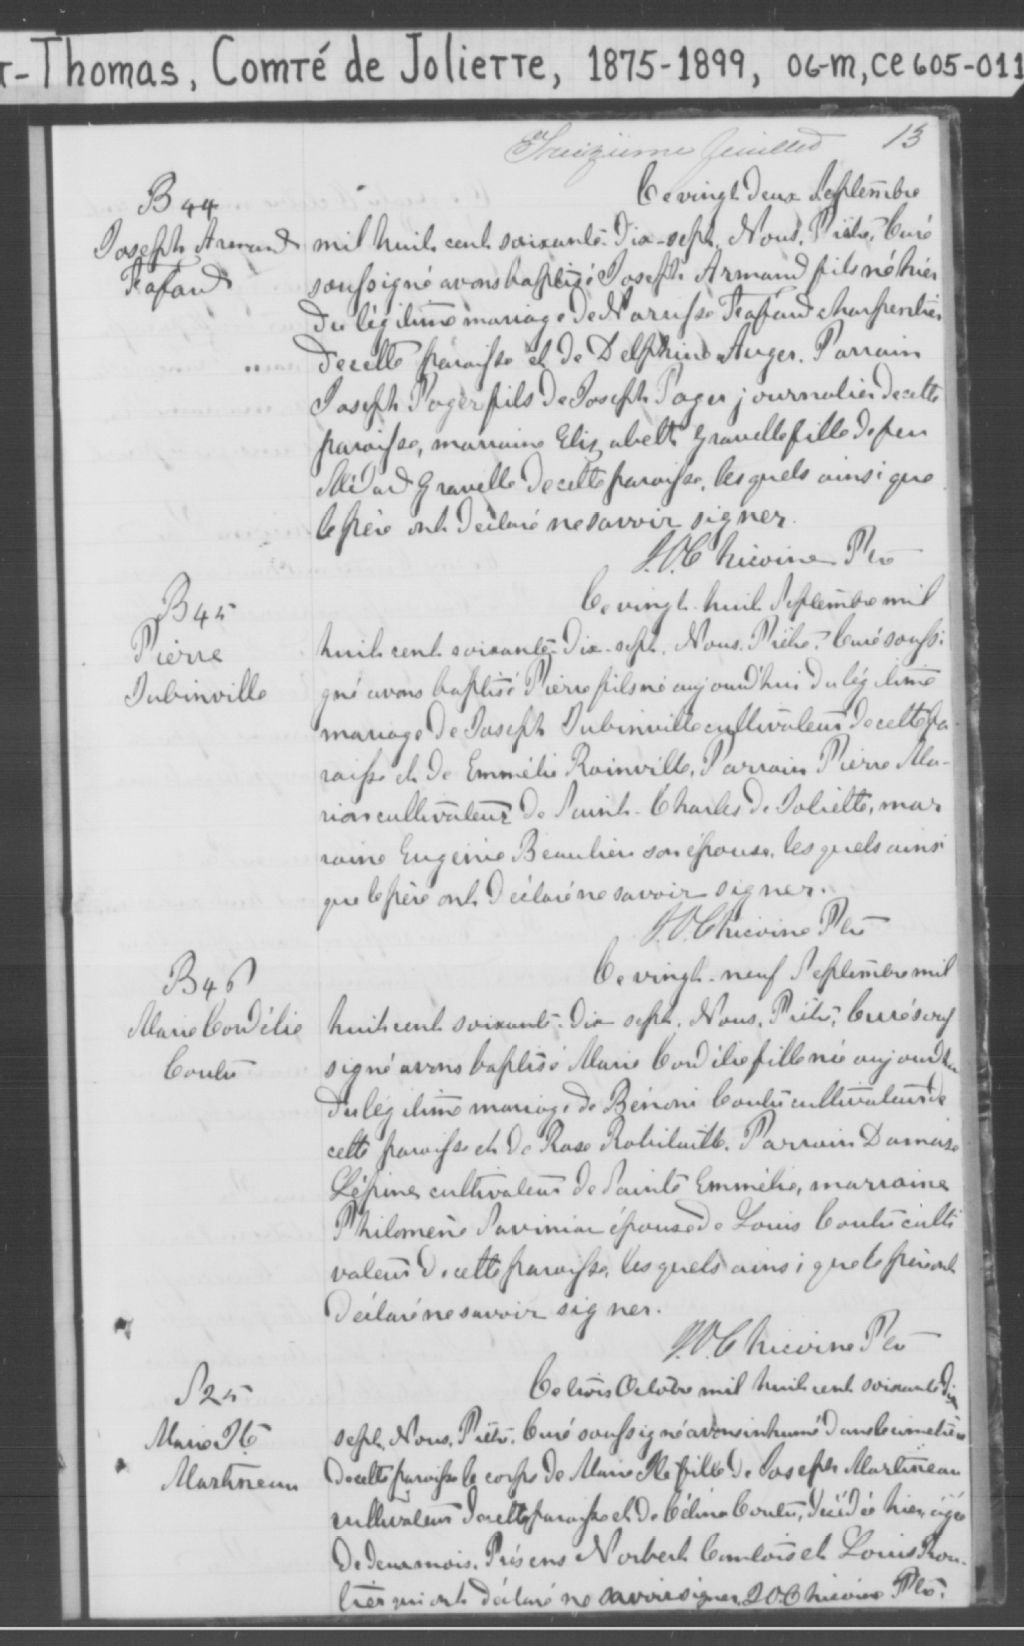 -Thomas, Comté de Joliette, 1875-1899, 06-M, CE605-011
Treizième feuillet 13
B 44
Joseph Armand
Ce vingt deux Septembre
mil huit cent soixante-dix-sept, Nous, Prêtre, Curé
soussigné avons baptisé Joseph Armand fils né hier
du légitime mariage de Narcisse charpentier
de cette paroisse et de Delphine Auger. Parrain
Joseph fils de Joseph journalier de cette
paroisse, marraine Elizabeth Gravelle fille de feu
Médard Gravelle de cette paroisse, lesquels ainsi que
le père ont déclaré ne savoir signer.
Ptre
B 45
Pierre
Jubinville
Ce vingt-huit Septembre mil
huit cent soixante-dix-sept, Nous, Prêtre, Curé soussi-
gné avons baptisé Pierre fils né aujourd'hui du légitime
mariage de Joseph Jubinville cultivateur de cette pa-
roisse et de Emmélie Rainville. Parrain Pierre Ma-
rion cultivateur de Saint-Charles de Joliette, mar
raine Eugénie Beaulieu son épouse, lesquels ainsi
que le père ont déclaré ne savoir signer.
Ptre
B 46
Marie Cordélie
Coutu
Ce vingt-neuf Septembre mil
huit cent soixante-dix sept, Nous, Prêtre, Curé sous
signé avons baptisé Marie Cordélie fille née aujourd'hui
du légitime mariage de Bénoni Coutu cultivateur de
cette paroisse et de Rose Robitaille. Parrain Damase
Lépine cultivateur de Sainte Emmélie, marraine
Philomène Savinian épouse de Louis Coutu culti
vateur de cette paroisse, lesquels ainsi que le père ont
déclaré ne savoir signer.
Ptre
S 25
Marie
Martineau
Ce trois Octobre mil huit cent soixante dix
sept, Nous, Prêtre, Curé soussigné avons inhumé dans le cimetière
de cette paroisse le corps de Marie fille de Joseph Martineau
cultivateur de cette paroisse et de Célina Coutu, décédée hier, âgée
de deux mois. Présens Norbert et Louis
qui ont déclaré ne savoir signer. Ptre.